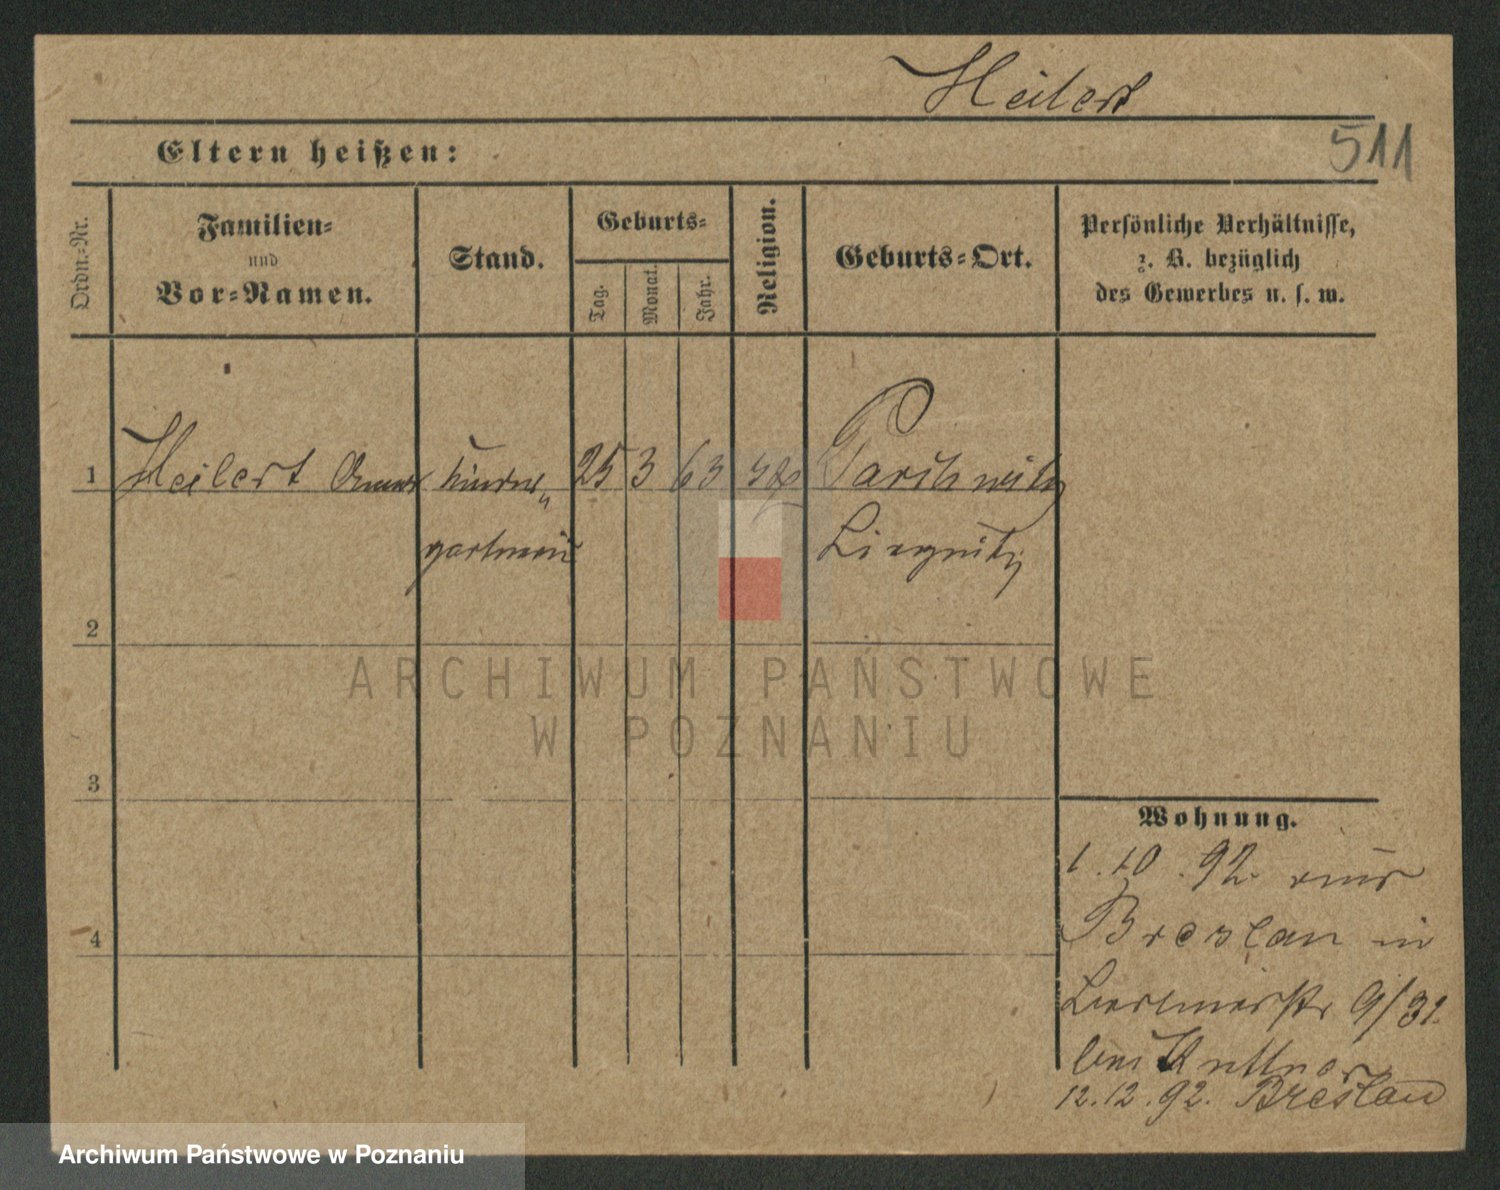 Heilert
511
Eltern heißen:
Ordn.-Nr.
Familien-
und
Vor-Namen.
Stand.
Geburts-
Tag.
Monat.
Jahr.
Religion.
Geburts-Ort.
Persönliche Verhältnisse,
z. B. bezüglich
des Gewerbes u. s. w.
1 Heilert Anna Kinder 25 3 63 Parchwitz
gärtnerin Liegnitz
2
3
4
Wohnung.
1.10.92. aus
Breslau in
9/31.
bei Kuttner
12.12.92. Breslau
ARCHIWUM PAŃSTWOWE
W POZNANIU
Archiwum Państwowe w Poznaniu